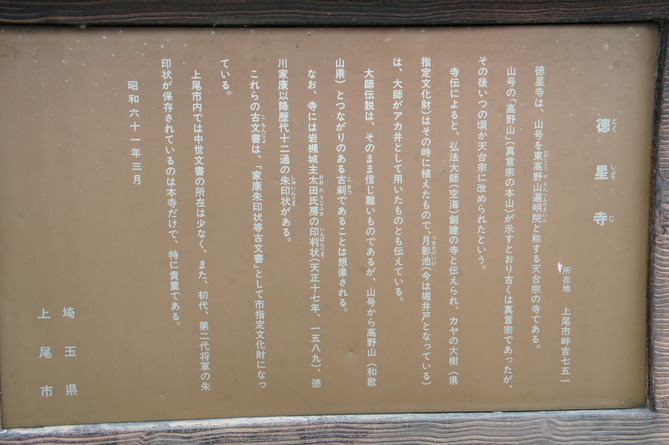 徳星寺
所在地　上尾市畔吉七五一
徳星寺は、山号を東高野山遍明院と称する天台宗の寺である。
山号の「高野山」（真言宗の本山）が示すとおり古くは真言宗であったが、
その後いつの頃か天台宗に改められたという。
寺伝によると、弘法大師（空海）創建の寺と伝えられ、カヤの大樹（県
指定文化財）はその時に植えたもので、月影池（今は堀井戸となっている）
は、大師がアカ井として用いたものとも伝えている。
大師伝説は、そのまま信じ難いものであるが、山号から高野山（和歌
山県）とつながりのある古刹であることは想像される。
なお、寺には岩槻城主太田氏房の印判状（天正十七年、一五八九）、徳
川家康以降歴代十二通の朱印状がある。
これらの古文書は、「家康朱印状等古文書」として市指定文化財になっ
ている。
上尾市内では中世文書の所在は少なく、また、初代、第二代将軍の朱
印状が保存されているのは本寺だけで、特に貴重である。
昭和六十一年三月
埼玉県
上尾市